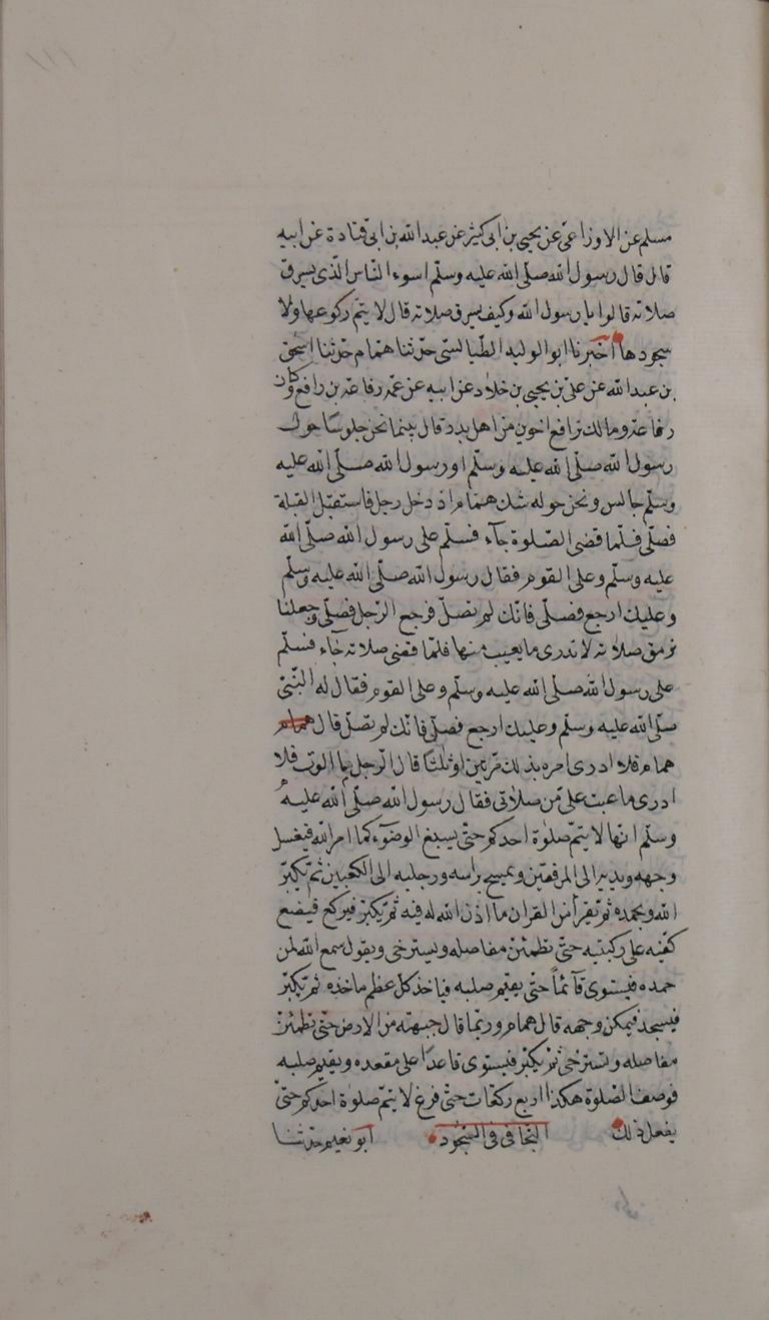 مسلم عن الاوزاعى عن يحيى بن ابى كثير عن عبد الله بن ابى قتادة عن ابيه
قال قال رسول الله صلى الله عليه وسلم اسوء الناس الذى يسرق
صلاته قالوا يا رسول الله وكيف يسرق صلاته قال لا يتم ركوعها ولا
سجودها اخبرنا ابو الوليد الطيالسى حدثنا همام حدثنا اسحق
بن عبد الله عن على بن يحيى بن خلاد عن ابيه عن عمه رفاعة بن رافع وكان
رفاعة ومالك بن رافع اخوين من اهل بدر قال بينما نحن جلوسا حول
رسول الله صلى الله عليه وسلم او رسول الله صلى الله عليه
وسلم جالس ونحن حوله شك همام اذ دخل رجل فاستقبل القبلة
فصلى فلما قضى الصلوة جاء فسلم على رسول الله صلى الله
عليه وسلم وعلى القوم فقال رسول الله صلى الله عليه وسلم
وعليك ارجع فصلى فانك لم تصل فرجع الرجل فصلى وجعلنا
نرمق صلاته لا ندرى ما يعيب منها فلما قضى صلاته جاء فسلم
على رسول الله صلى الله عليه وسلم وعلى القوم فقال له النبى
صلى الله عليه وسلم وعليك ارجع فصلى فانك لم تصل قال همام
همام فلا ادرى امره بذلك مرتين او ثلثا قال الرجل ما الوت فلا
ادرى ما عبت على من صلاتى فقال رسول الله صلى الله عليه
وسلم انها لا يتم صلوة احدكم حتى يسبغ الوضوء كما امر الله فيغسل
وجهه ويديه الى المرفقين ويمسح براسه ورجليه الى الكعبين ثم يكبر
الله ويحمده ثم تقرأ من القران ما اذن الله له فيه ثم يكبر فيركع فيضع
كفيه على ركبتيه حتى تطمئن مفاصله ويسترخى ويقول سمع الله لمن
حمده فيستوى قآئما حتى يقيم صلبه فياخذ كل عظم ماخذه ثم يكبر
فيسجد فيمكن وجهه قال همام وربما قال جبهته من الارض حتى تطمئن
مفاصله وتسترخى ثم يكبر فيستوى قاعدا على مقعده ويقيم صلبه
فوصف الصلوة هكذا اربع ركعات حتى فرغ لا يتم صلوة احدكم حتى
يفعل ذلك التجافى فى السجود ابو نعيم حدثنا